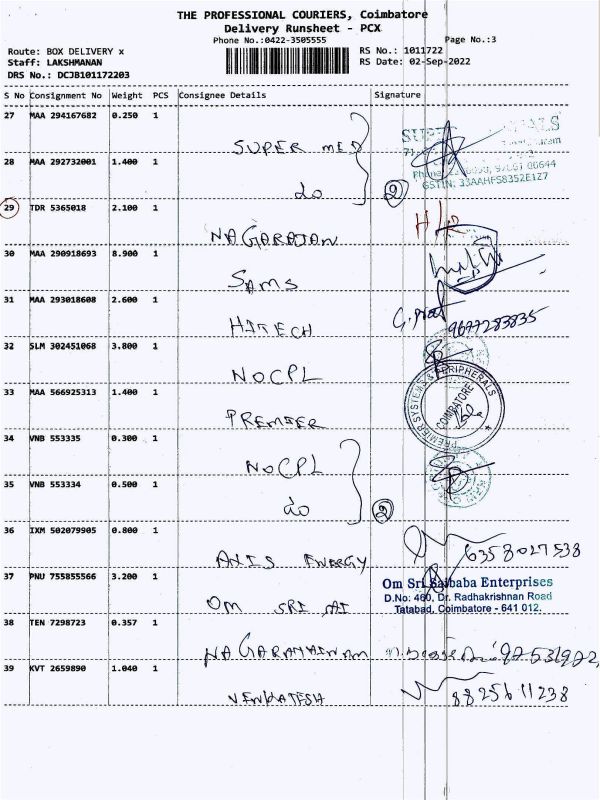 THE PROFESSIONAL COURIERS, Coimbatore
Delivery Runsheet - PCX
Phone No.:0422-3505555
Page No.:3
Route: BOX DELIVERY x
RS No.: 1011722
Staff: LAKSHMANAN
RS Date: 02-Sep-2022
DRS No.: DCJB101172203
S No Consignment No Weight PCS Consignee Details Signature
27 MAA 294167682 0.250 1
SUPER MED
28 MAA 292732001 1.400 1
do 2
GSTIN: 33AAHFS8352E1Z7
29 TDR 5365018 2.100 1
NAGARAJAN
30 MAA 290918693 8.900 1
SAMS
31 MAA 293018608 2.600 1
HITECH 9677283835
32 SLM 302451068 3.800 1
NOCPL
33 MAA 566925313 1.400 1
PREMIER
PREMIER SYSTEMS & PERIPHERALS
COIMBATORE
34 VNB 553335 0.300 1
NOCPL
35 VNB 553334 0.500 1
do 2
36 IXM 502079905 0.800 1
AXIS ENERGY 6358027538
37 PNU 755855566 3.200 1
OM SRI SAI
Om Sri Saibaba Enterprises
D.No: 460, Dr. Radhakrishnan Road
Tatabad, Coimbatore - 641 012.
38 TEN 7298723 0.357 1
39 KVT 2659890 1.040 1
VENKATESH 8825611238